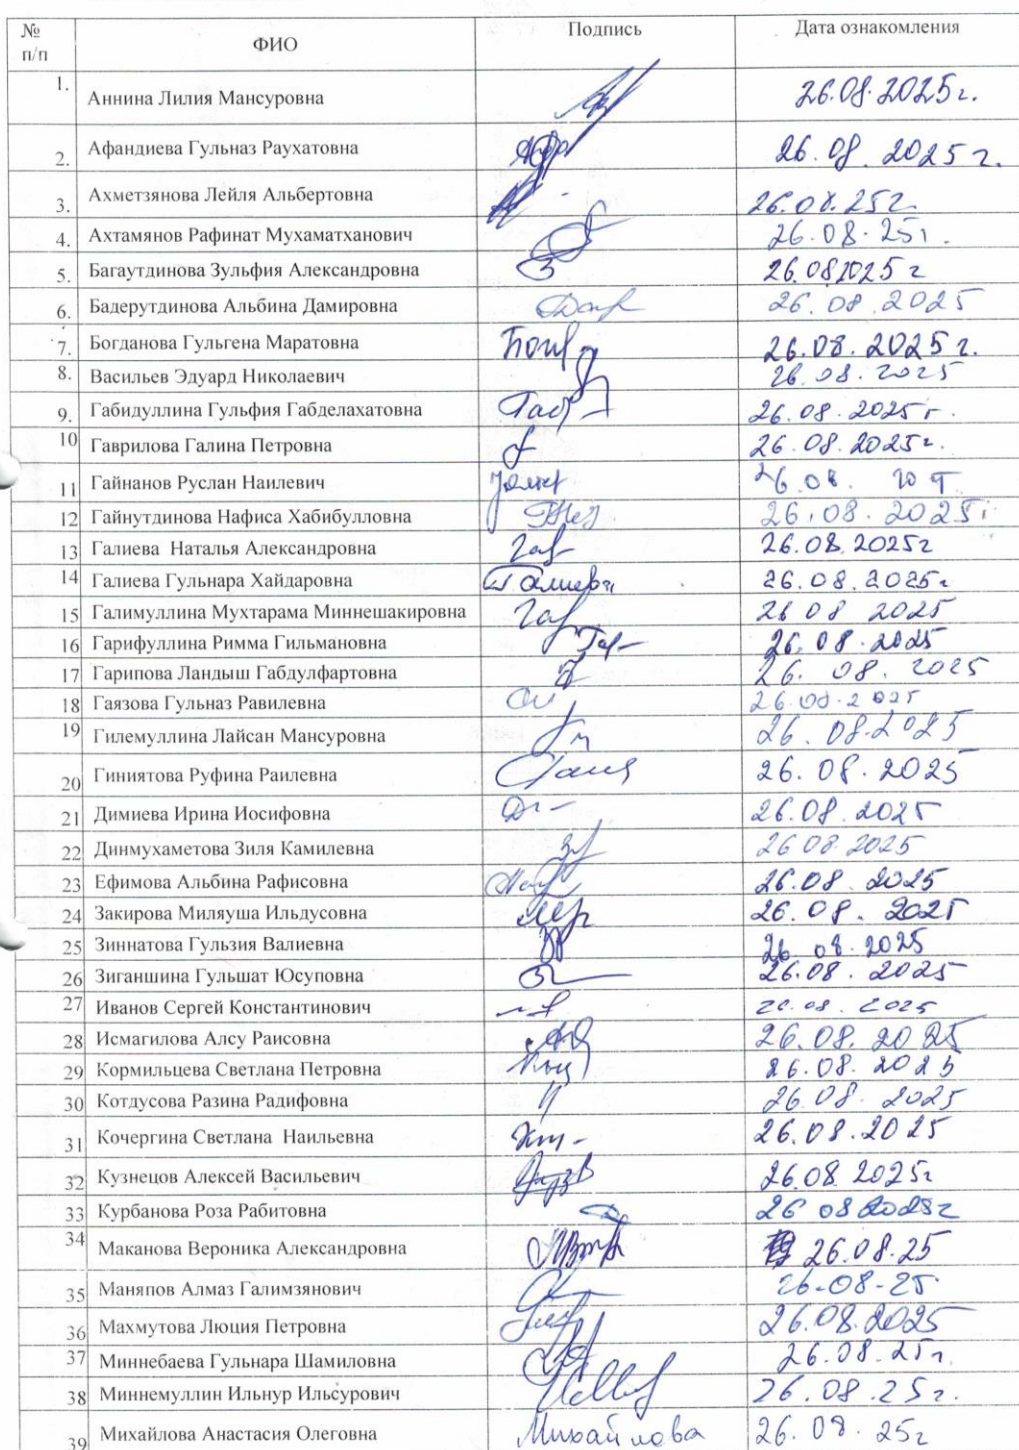 № п/п ФИО Подпись Дата ознакомления
1. Аннина Лилия Мансуровна 26.08.2025г.
2. Афандиева Гульназ Раухатовна 26.08.2025 г.
3. Ахметзянова Лейля Альбертовна 26.08.25г.
4. Ахтамянов Рафинат Мухаматханович 26.08.25г.
5. Багаутдинова Зульфия Александровна 26.08.2025 г
6. Бадерутдинова Альбина Дамировна 26.08.2025
7. Богданова Гульгена Маратовна 26.08.2025 г.
8. Васильев Эдуард Николаевич 26.08.2025
9. Габидуллина Гульфия Габделахатовна 26.08.2025 г.
10 Гаврилова Галина Петровна 26.08.2025г.
11 Гайнанов Руслан Наилевич 26.08.
12 Гайнутдинова Нафиса Хабибулловна 26.08.2025
13 Галиева Наталья Александровна 26.08.2025г
14 Галиева Гульнара Хайдаровна 26.08.2025г
15 Галимуллина Мухтарама Миннешакировна 26 08 2025
16 Гарифуллина Римма Гильмановна 26.08.2025
17 Гарипова Ландыш Габдулфартовна 26.08.2025
18 Гаязова Гульназ Равилевна 26.08.2025
19 Гилемуллина Лайсан Мансуровна 26.08.2025
20 Гиниятова Руфина Раилевна 26.08.2025
21 Димиева Ирина Иосифовна 26.08.2025
22 Динмухаметова Зиля Камилевна 26 08 2025
23 Ефимова Альбина Рафисовна 26.08.2025
24 Закирова Миляуша Ильдусовна 26.08.2025
25 Зиннатова Гульзия Валиевна 26 08.2025
26 Зиганшина Гульшат Юсуповна 26.08.2025
27 Иванов Сергей Константинович 26.08.2025
28 Исмагилова Алсу Раисовна 26.08.2025
29 Кормильцева Светлана Петровна 26.08.2025
30 Котдусова Разина Радифовна 26.08.2025
31 Кочергина Светлана Наильевна 26.08.2025
32 Кузнецов Алексей Васильевич 26.08.2025г
33 Курбанова Роза Рабитовна 26 08 2025г
34 Маканова Вероника Александровна 26.08.25
35 Маняпов Алмаз Галимзянович 26-08-25
36 Махмутова Люция Петровна 26.08.2025
37 Миннебаева Гульнара Шамиловна 26.08.25г.
38 Миннемуллин Ильнур Ильсурович 26.08.25г.
39 Михайлова Анастасия Олеговна Михайлова 26.08.25г